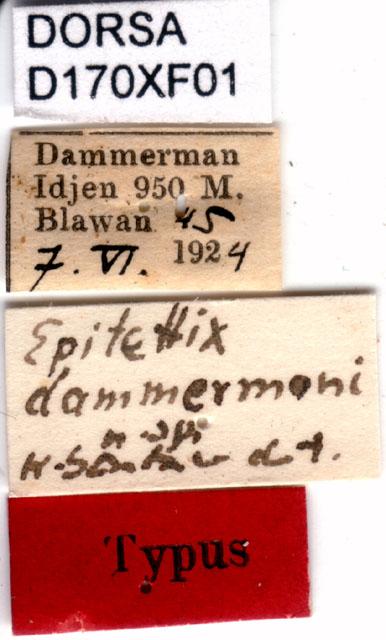 DORSA
D170XF01
Dammerman
Idjen 950 M.
Blawan 45
7. VI. 1924
Epitettix
dammermani
n. sp.
det.
Typus